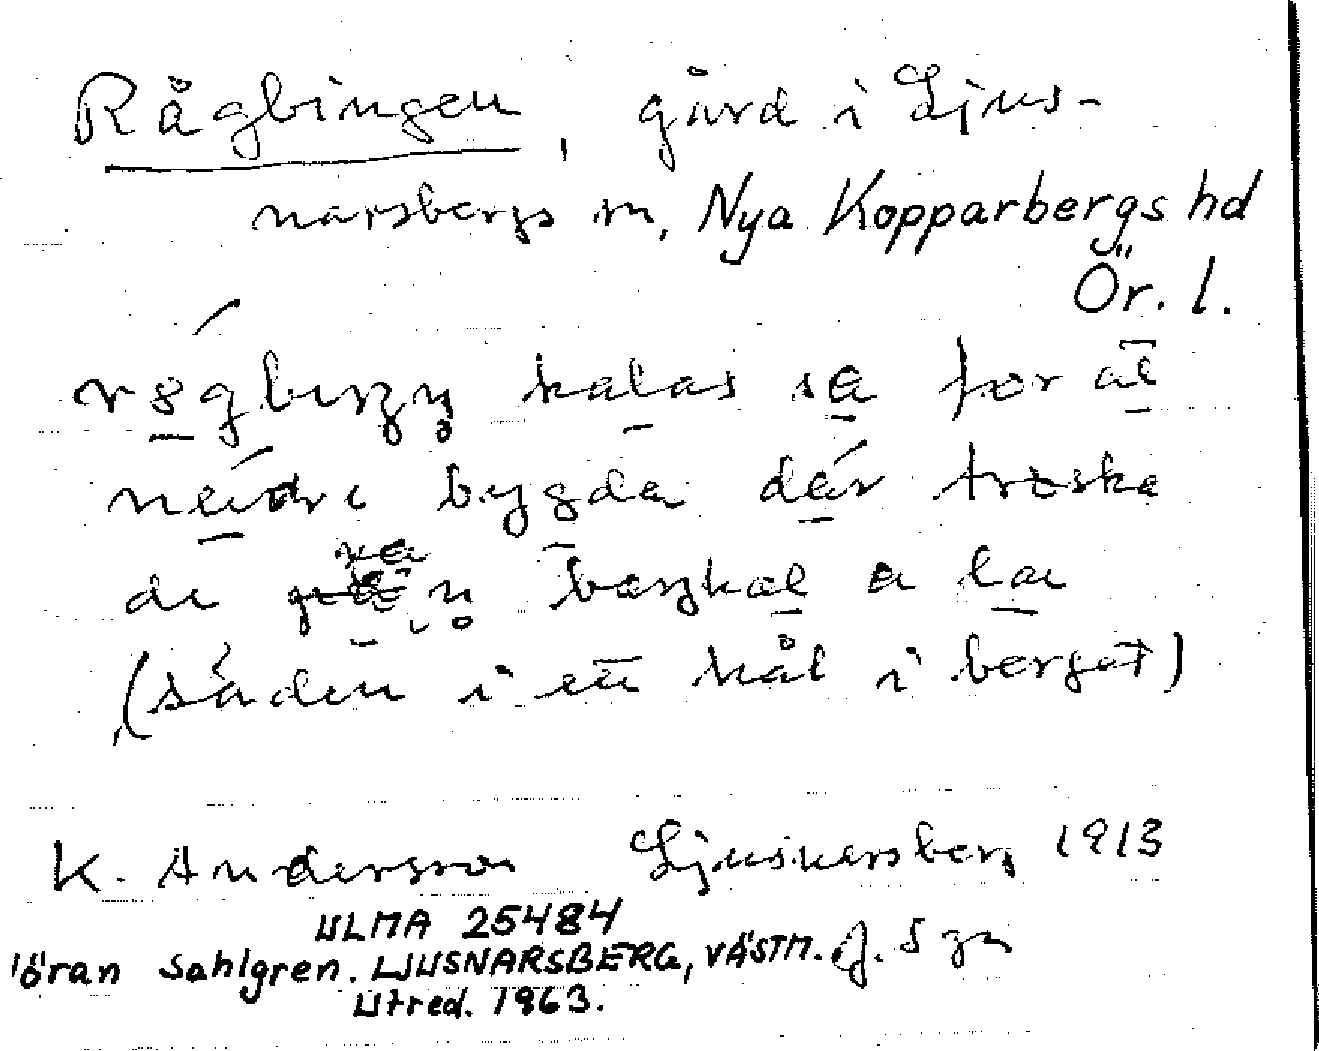 Rågbingen, gård i Ljus-
narsbergs sn, Nya Kopparbergs hd
Ör. l.
kalas sa for at
bygda där trska
de a la
(säden i ett hål i berget)
K. Andersson Ljusnarsberg 1913
ULMA 25484
öran Sahlgren. LJUSNARSBERG, VÄSTM. J. Sgn
Utred. 1963.